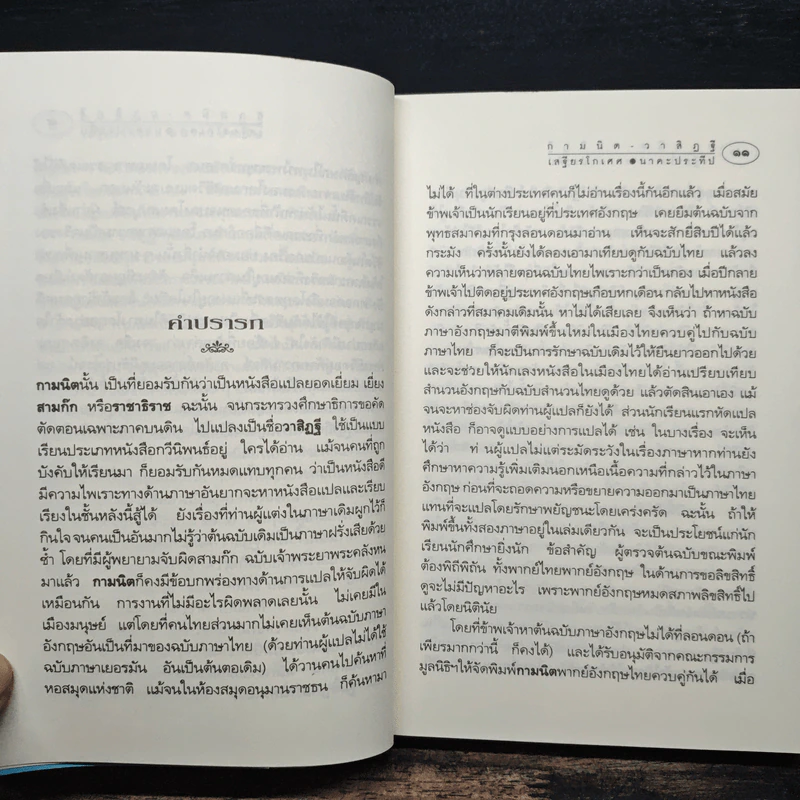 คำปรารภ
กามนิตนั้น เป็นที่ยอมรับกันว่าเป็นหนังสือแปลยอดเยี่ยม เยี่ยง
สามก๊ก หรือราชาธิราช ฉะนั้น จนกระทรวงศึกษาธิการขอคัด
ตัดตอนเฉพาะภาคบนดิน ไปแปลงเป็นชื่อวาสิฏฐี ใช้เป็นแบบ
เรียนประเภทหนังสือกวีนิพนธ์อยู่ ใครได้อ่าน แม้จนคนที่ถูก
บังคับให้เรียนมา ก็ยอมรับกันหมดแทบทุกคน ว่าเป็นหนังสือดี
มีความไพเราะทางด้านภาษาอันยากจะหาหนังสือแปลและเรียบ
เรียงในชั้นหลังนี้สู้ได้ ยังเรื่องที่ท่านผู้แต่งในภาษาเดิมผูกไว้ก็
กินใจ จนคนเป็นอันมากไม่รู้ว่าต้นฉบับเดิมเป็นภาษาฝรั่งเสียด้วย
ซ้ำ โดยที่มีผู้พยายามจับผิดสามก๊ก ฉบับเจ้าพระยาพระคลังหน
มาแล้ว กามนิตก็คงมีข้อบกพร่องทางด้านการแปลให้จับผิดได้
เหมือนกัน การงานที่ไม่มีอะไรผิดพลาดเลยนั้น ไม่เคยมีใน
เมืองมนุษย์ แต่โดยที่คนไทยส่วนมากไม่เคยเห็นต้นฉบับภาษา
อังกฤษอันเป็นที่มาของฉบับภาษาไทย (ด้วยท่านผู้แปลไม่ได้ใช้
ฉบับภาษาเยอรมัน อันเป็นต้นตอเดิม) ได้วานคนไปค้นหาที่
หอสมุดแห่งชาติ แม้จนในห้องสมุดอนุมานราชธน ก็ค้นหามา
กามนิต-วาสิฏฐี
เสฐียรโกเศศ ● นาคะประทีป
๑๑
ไม่ได้ ที่ในต่างประเทศคนก็ไม่อ่านเรื่องนี้กันอีกแล้ว เมื่อสมัย
ข้าพเจ้าเป็นนักเรียนอยู่ที่ประเทศอังกฤษ เคยยืมต้นฉบับจาก
พุทธสมาคมที่กรุงลอนดอนมาอ่าน เห็นจะสักยี่สิบปีได้แล้ว
กระมัง ครั้งนั้นยังได้ลองเอามาเทียบดูกับฉบับไทย แล้วลง
ความเห็นว่าหลายตอนฉบับไทยไพเราะกว่าเป็นกอง เมื่อปีกลาย
ข้าพเจ้าไปติดอยู่ประเทศอังกฤษเกือบหกเดือน กลับไปหาหนังสือ
ดังกล่าวที่สมาคมเดิมนั้น หาไม่ได้เสียเลย จึงเห็นว่า ถ้าหาฉบับ
ภาษาอังกฤษมาตีพิมพ์ขึ้นใหม่ในเมืองไทยควบคู่ไปกับฉบับ
ภาษาไทย ก็จะเป็นการรักษาฉบับเดิมไว้ให้ยืนยาวออกไปด้วย
และจะช่วยให้นักเลงหนังสือในเมืองไทยได้อ่านเปรียบเทียบ
สำนวนอังกฤษกับฉบับสำนวนไทยดูด้วย แล้วตัดสินเอาเอง แม้
จนจะหาช่องจับผิดท่านผู้แปลก็ยังได้ ส่วนนักเรียนแรกหัดแปล
หนังสือ ก็อาจดูแบบอย่างการแปลได้ เช่น ในบางเรื่อง จะเห็น
ได้ว่า ท่านผู้แปลไม่แต่ระมัดระวังในเรื่องภาษาหากท่านยัง
ศึกษาหาความรู้เพิ่มเติมนอกเหนือเนื้อความที่กล่าวไว้ในภาษา
อังกฤษ ก่อนที่จะถอดความหรือขยายความออกมาเป็นภาษาไทย
แทนที่จะแปลโดยรักษาพยัญชนะโดยเคร่งครัด ฉะนั้น ถ้าให้
พิมพ์ขึ้นทั้งสองภาษาอยู่ในเล่มเดียวกัน จะเป็นประโยชน์แก่นัก
เรียนนักศึกษายิ่งนัก ข้อสำคัญ ผู้ตรวจต้นฉบับขณะพิมพ์
ต้องพิถีพิถัน ทั้งพากย์ไทยพากย์อังกฤษ ในด้านการขอลิขสิทธิ์
ดูจะไม่มีปัญหาอะไร เพราะพากย์อังกฤษหมดสภาพลิขสิทธิ์ไป
แล้วโดยนิตินัย
โดยที่ข้าพเจ้าหาต้นฉบับภาษาอังกฤษไม่ได้ที่ลอนดอน (ถ้า
เพียรมากกว่านี้ ก็คงได้) และได้รับอนุมัติจากคณะกรรมการ
มูลนิธิฯให้จัดพิมพ์กามนิตพากย์อังกฤษไทยควบคู่กันได้ เมื่อ